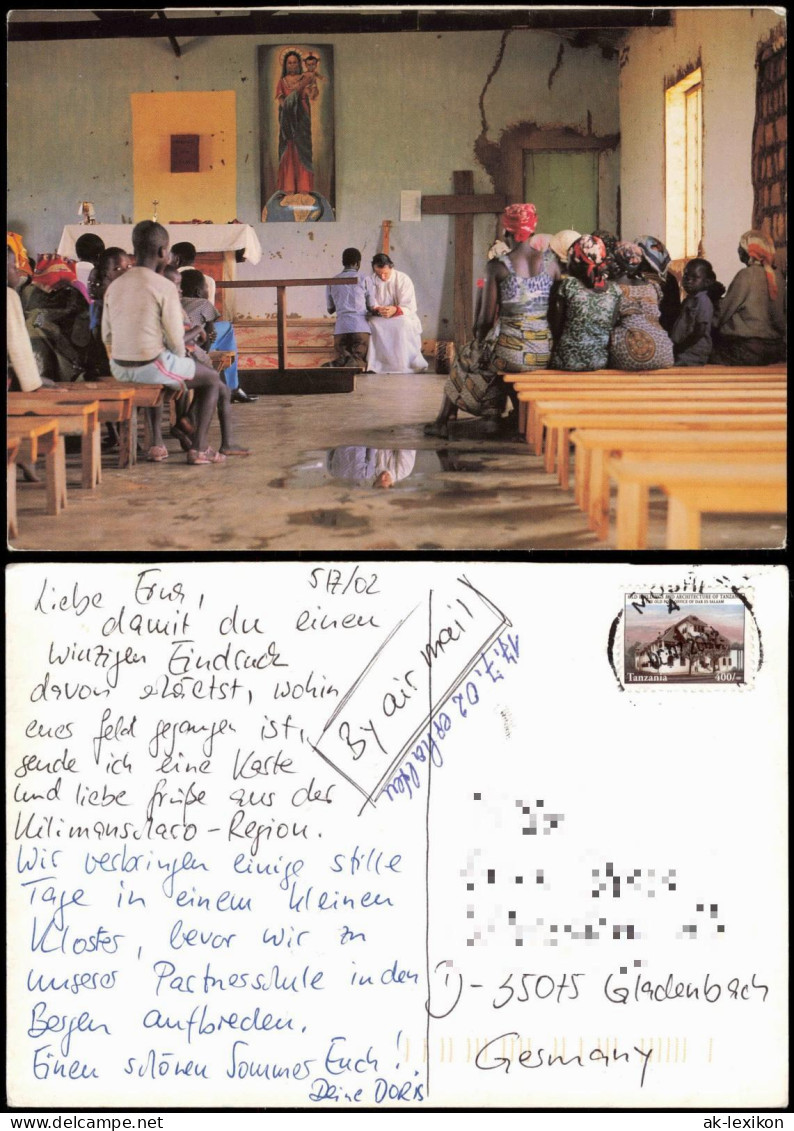 Liebe Erna,
5/7/02
damit du einen
winzigen Eindruck
davon erhältst, wohin
euer Geld gegangen ist,
sende ich eine Karte
und liebe Grüße aus der
Kilimanscharo-Region.
Wir verbringen einige stille
Tage in einem kleinen
Kloster, bevor wir zu
unserer Partnerschule in den
Bergen aufbrechen.
Einen schönen Sommer Euch!
Deine DORIS
By air mail
17.7.02 erhalten
OLD BUILDINGS AND ARCHITECTURE OF TANZANIA
Tanzania 400/=
D-35075 Gladenbach
Germany
ak-lexikon.com